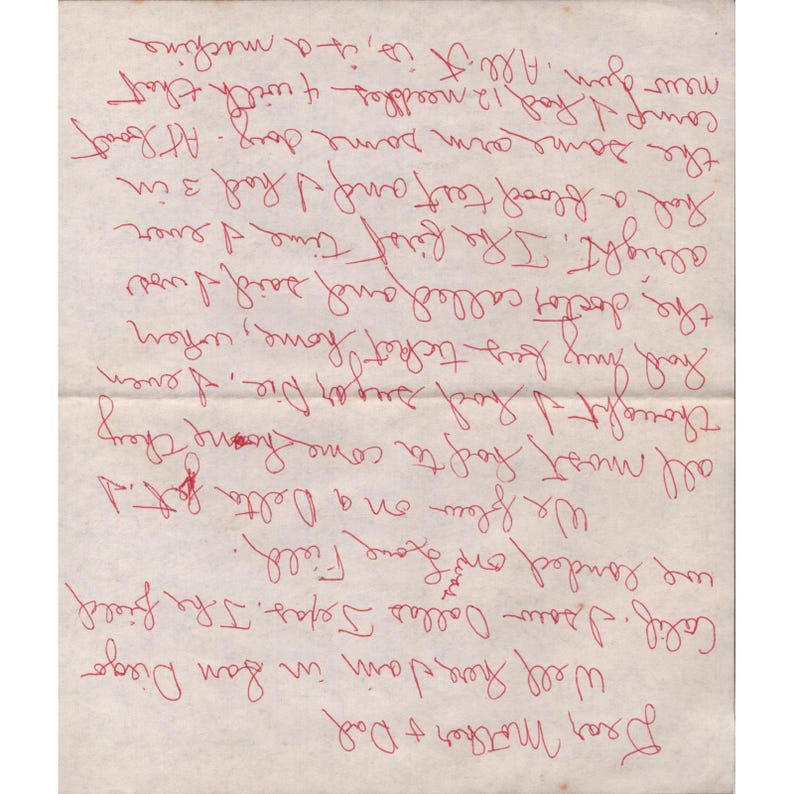 Dear Mother + Dad,
Well here I am in San Diego
Calif. I saw Dallas Texas. The field
we landed on was Love Field.
We flew on a Delta Jet. I
all most had to come home, they
thought I had sugar Die. I even
had my bus ticket home, when
the doctor called and said I was
alright. The first time I ever
had a blood test and I had 3 in
the same arm same day. At boot
camp I had 12 needles + with that
new gun. All it is, is a machine